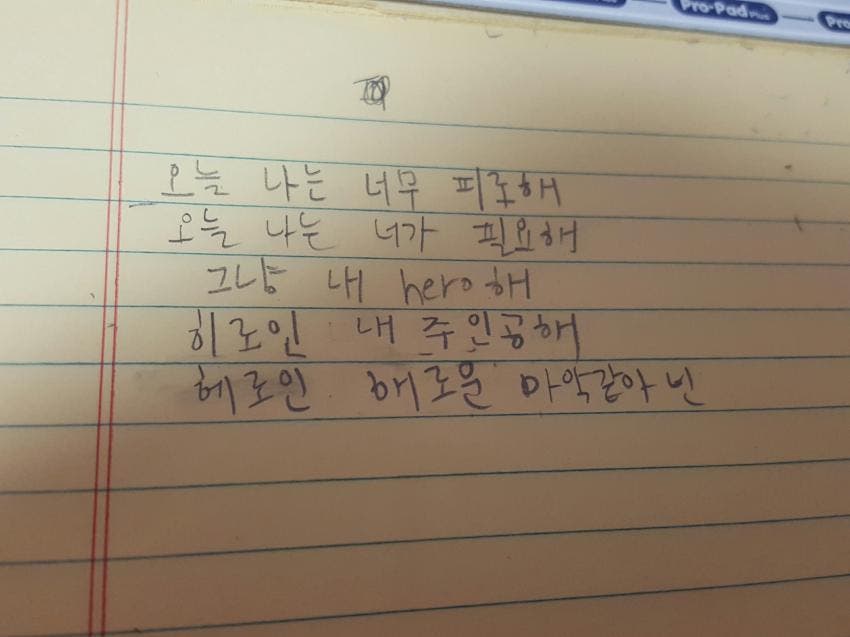 Pro-Pad Plus
Pro
오늘 나는 너무 피로해
오늘 나는 너가 필요해
그냥 내 hero해
히로인 내 주인공해
헤로인 해로운 마약같아 넌